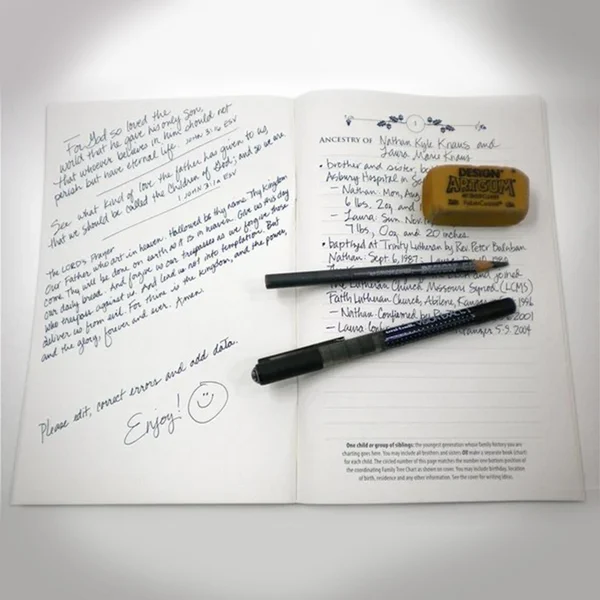 For God so loved the
world that he gave his only Son,
that whoever believes in him should not
perish but have eternal life. JOHN 3:16 ESV
See what kind of love the father has given to us
that we should be called the children of God; and so we are
1 JOHN 3:1a ESV
The LORD'S Prayer
Our Father who art in heaven. Hallowed be thy name. Thy kingdom
come. Thy will be done on earth as it is in heaven. Give us this day
our daily bread. And forgive us our trespasses as we forgive those
who trespass against us. And lead us not into temptation. But
deliver us from evil. For thine is the kingdom, and the power,
and the glory, forever and ever. Amen.
Please edit, correct errors and add data.
Enjoy!
1
ANCESTRY OF Nathan Kyle Knaus and
Laura Marie Knaus
• brother and sister, b
Asbury Hospital in S
– Nathan: Mon, Au
6 lbs. 2oz and
– Laura: Sun. Nov
7 lbs, 0oz and 20 inches
• baptized at Trinity Lutheran by Rev. Peter
Nathan: Sept. 6, 1987;
and joined
The Lutheran Church Missouri Synod (LCMS)
Faith Lutheran Church, Abilene, Kansas 1996
– Nathan Confirmed by 2001
– Laura 5-9-2004
DESIGN
ARTGUM
One child or group of siblings: the youngest generation whose family history you are
charting goes here. You may include all brothers and sisters OR make a separate book (chart)
for each child. The circled number of this page matches the number one position of
the coordinating Family Tree Chart as shown on cover. You may include birthdate, location
of birth, residence and any other information. See the cover for writing ideas.